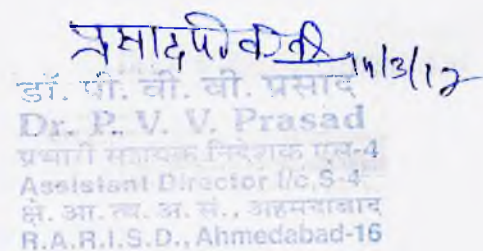 14/3/12
डॉ. पी. वी. वी. प्रसाद
Dr. P. V. V. Prasad
प्रभारी सहायक निदेशक एस-4
Assistant Director I/c, S-4
क्षे. आ. त्व. अ. सं., अहमदाबाद
R.A.R.I.S.D., Ahmedabad-16